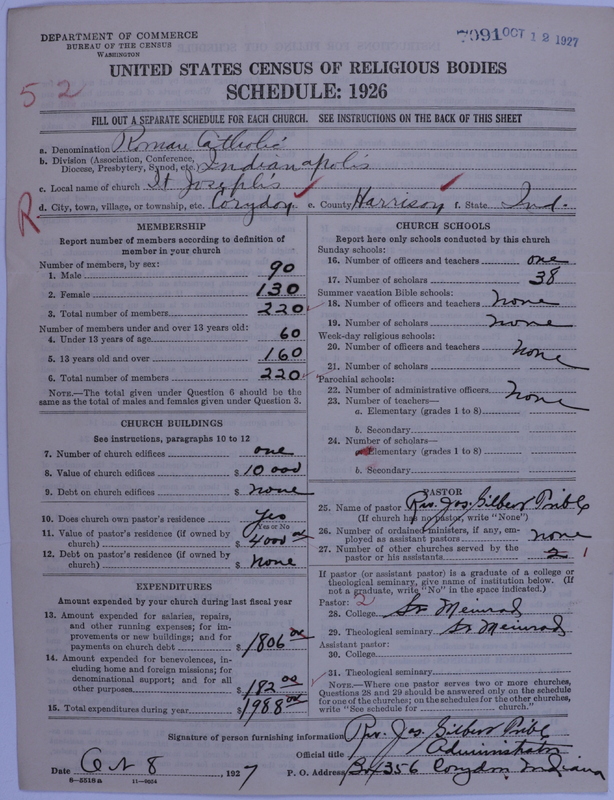 DEPARTMENT OF COMMERCE
BUREAU OF THE CENSUS
WASHINGTON
7091 OCT 12 1927
UNITED STATES CENSUS OF RELIGIOUS BODIES
SCHEDULE: 1926
52
FILL OUT A SEPARATE SCHEDULE FOR EACH CHURCH. SEE INSTRUCTIONS ON THE BACK OF THIS SHEET
a. Denomination Roman Catholic
b. Division (Association, Conference, Diocese, Presbytery, Synod, etc.) Indianapolis
c. Local name of church St Joseph's
R d. City, town, village, or township, etc. Corydon. e. County Harrison f. State Ind.
MEMBERSHIP
Report number of members according to definition of
member in your church
Number of members, by sex:
1. Male 90
2. Female 130
3. Total number of members 220
Number of members under and over 13 years old:
4. Under 13 years of age 60
5. 13 years old and over 160
6. Total number of members 220
NOTE.—The total given under Question 6 should be
same as the total of males and females given under Question 3.
CHURCH BUILDINGS
See instructions, paragraphs 10 to 12
7. Number of church edifices one
8. Value of church edifices $ 10 000
9. Debt on church edifices $ none
10. Does church own pastor's residence yes
Yes or No
11. Value of pastor's residence (if owned by
church) $ 4000 00
12. Debt on pastor's residence (if owned by
church) $ none
EXPENDITURES
Amount expended by your church during last fiscal year
13. Amount expended for salaries, repairs,
and other running expenses; for im-
provements or new buildings; and for
payments on church debt $ 1806 00
14. Amount expended for benevolences, in-
cluding home and foreign missions; for
denominational support; and for all
other purposes $ 182 00
15. Total expenditures during year $ 1988 00
CHURCH SCHOOLS
Report here only schools conducted by this church
Sunday schools:
16. Number of officers and teachers one
17. Number of scholars 38
Summer vacation Bible schools:
18. Number of officers and teachers none
19. Number of scholars none
Week-day religious schools:
20. Number of officers and teachers none
21. Number of scholars
Parochial schools:
22. Number of administrative officers none
23. Number of teachers—
a. Elementary (grades 1 to 8)
b. Secondary
24. Number of scholars—
a. Elementary (grades 1 to 8)
b. Secondary
PASTOR
25. Name of pastor Rev. Jos. Gilbert Pribl
(If church has no pastor, write "None")
26. Number of ordained ministers, if any, em-
ployed as assistant pastors none
27. Number of other churches served by the
pastor or his assistants 2 1
If pastor (or assistant pastor) is a graduate of a college or
theological seminary, give name of institution below. (If
not a graduate, write "No" in the space indicated.)
Pastor: 2
28. College St Meinrad
29. Theological seminary St Meinrad
Assistant pastor:
30. College
31. Theological seminary
NOTE.—Where one pastor serves two or more churches,
Questions 28 and 29 should be answered only on the schedule
for one of the churches; on the schedules for the other churches,
write "See schedule for church."
Signature of person furnishing information Rev. Jos. Gilbert Pribl
Official title Administrator
Date Oct 8, 1927 P. O. Address Box 356 Corydon, Indiana
8—5518a 11—9654